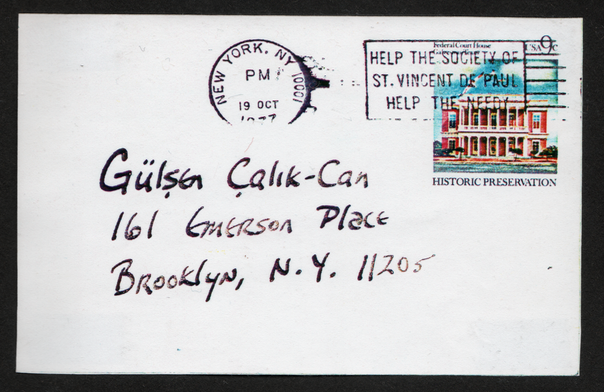 NEW YORK, NY 10001
PM
19 OCT
1977
HELP THE SOCIETY OF
ST. VINCENT DE PAUL
HELP THE NEEDY
Federal Court House
USA 9c
HISTORIC PRESERVATION
Gülşen Çalık-Can
161 Emerson Place
Brooklyn, N.Y. 11205